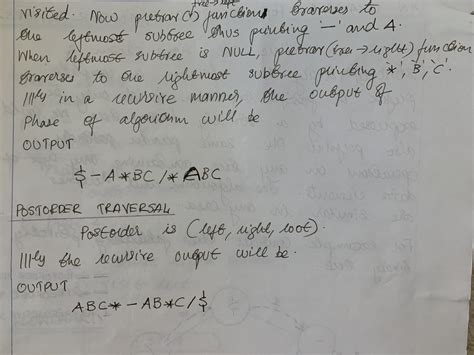 tree→left
visited. Now pretrav() function traverses to
the leftmost subtree thus printing '—' and A.
When leftmost subtree is NULL, pretrav(tree→right) function
traverses to the rightmost subtree printing *', B', 'C'.
IIIly in a recursive manner, the output of
phase of algorithm will be
OUTPUT
$ - A * BC / * ABC
POSTORDER TRAVERSAL
Postorder is (left, right, root).
IIIly the recursive output will be.
OUTPUT
ABC * - AB * C / $